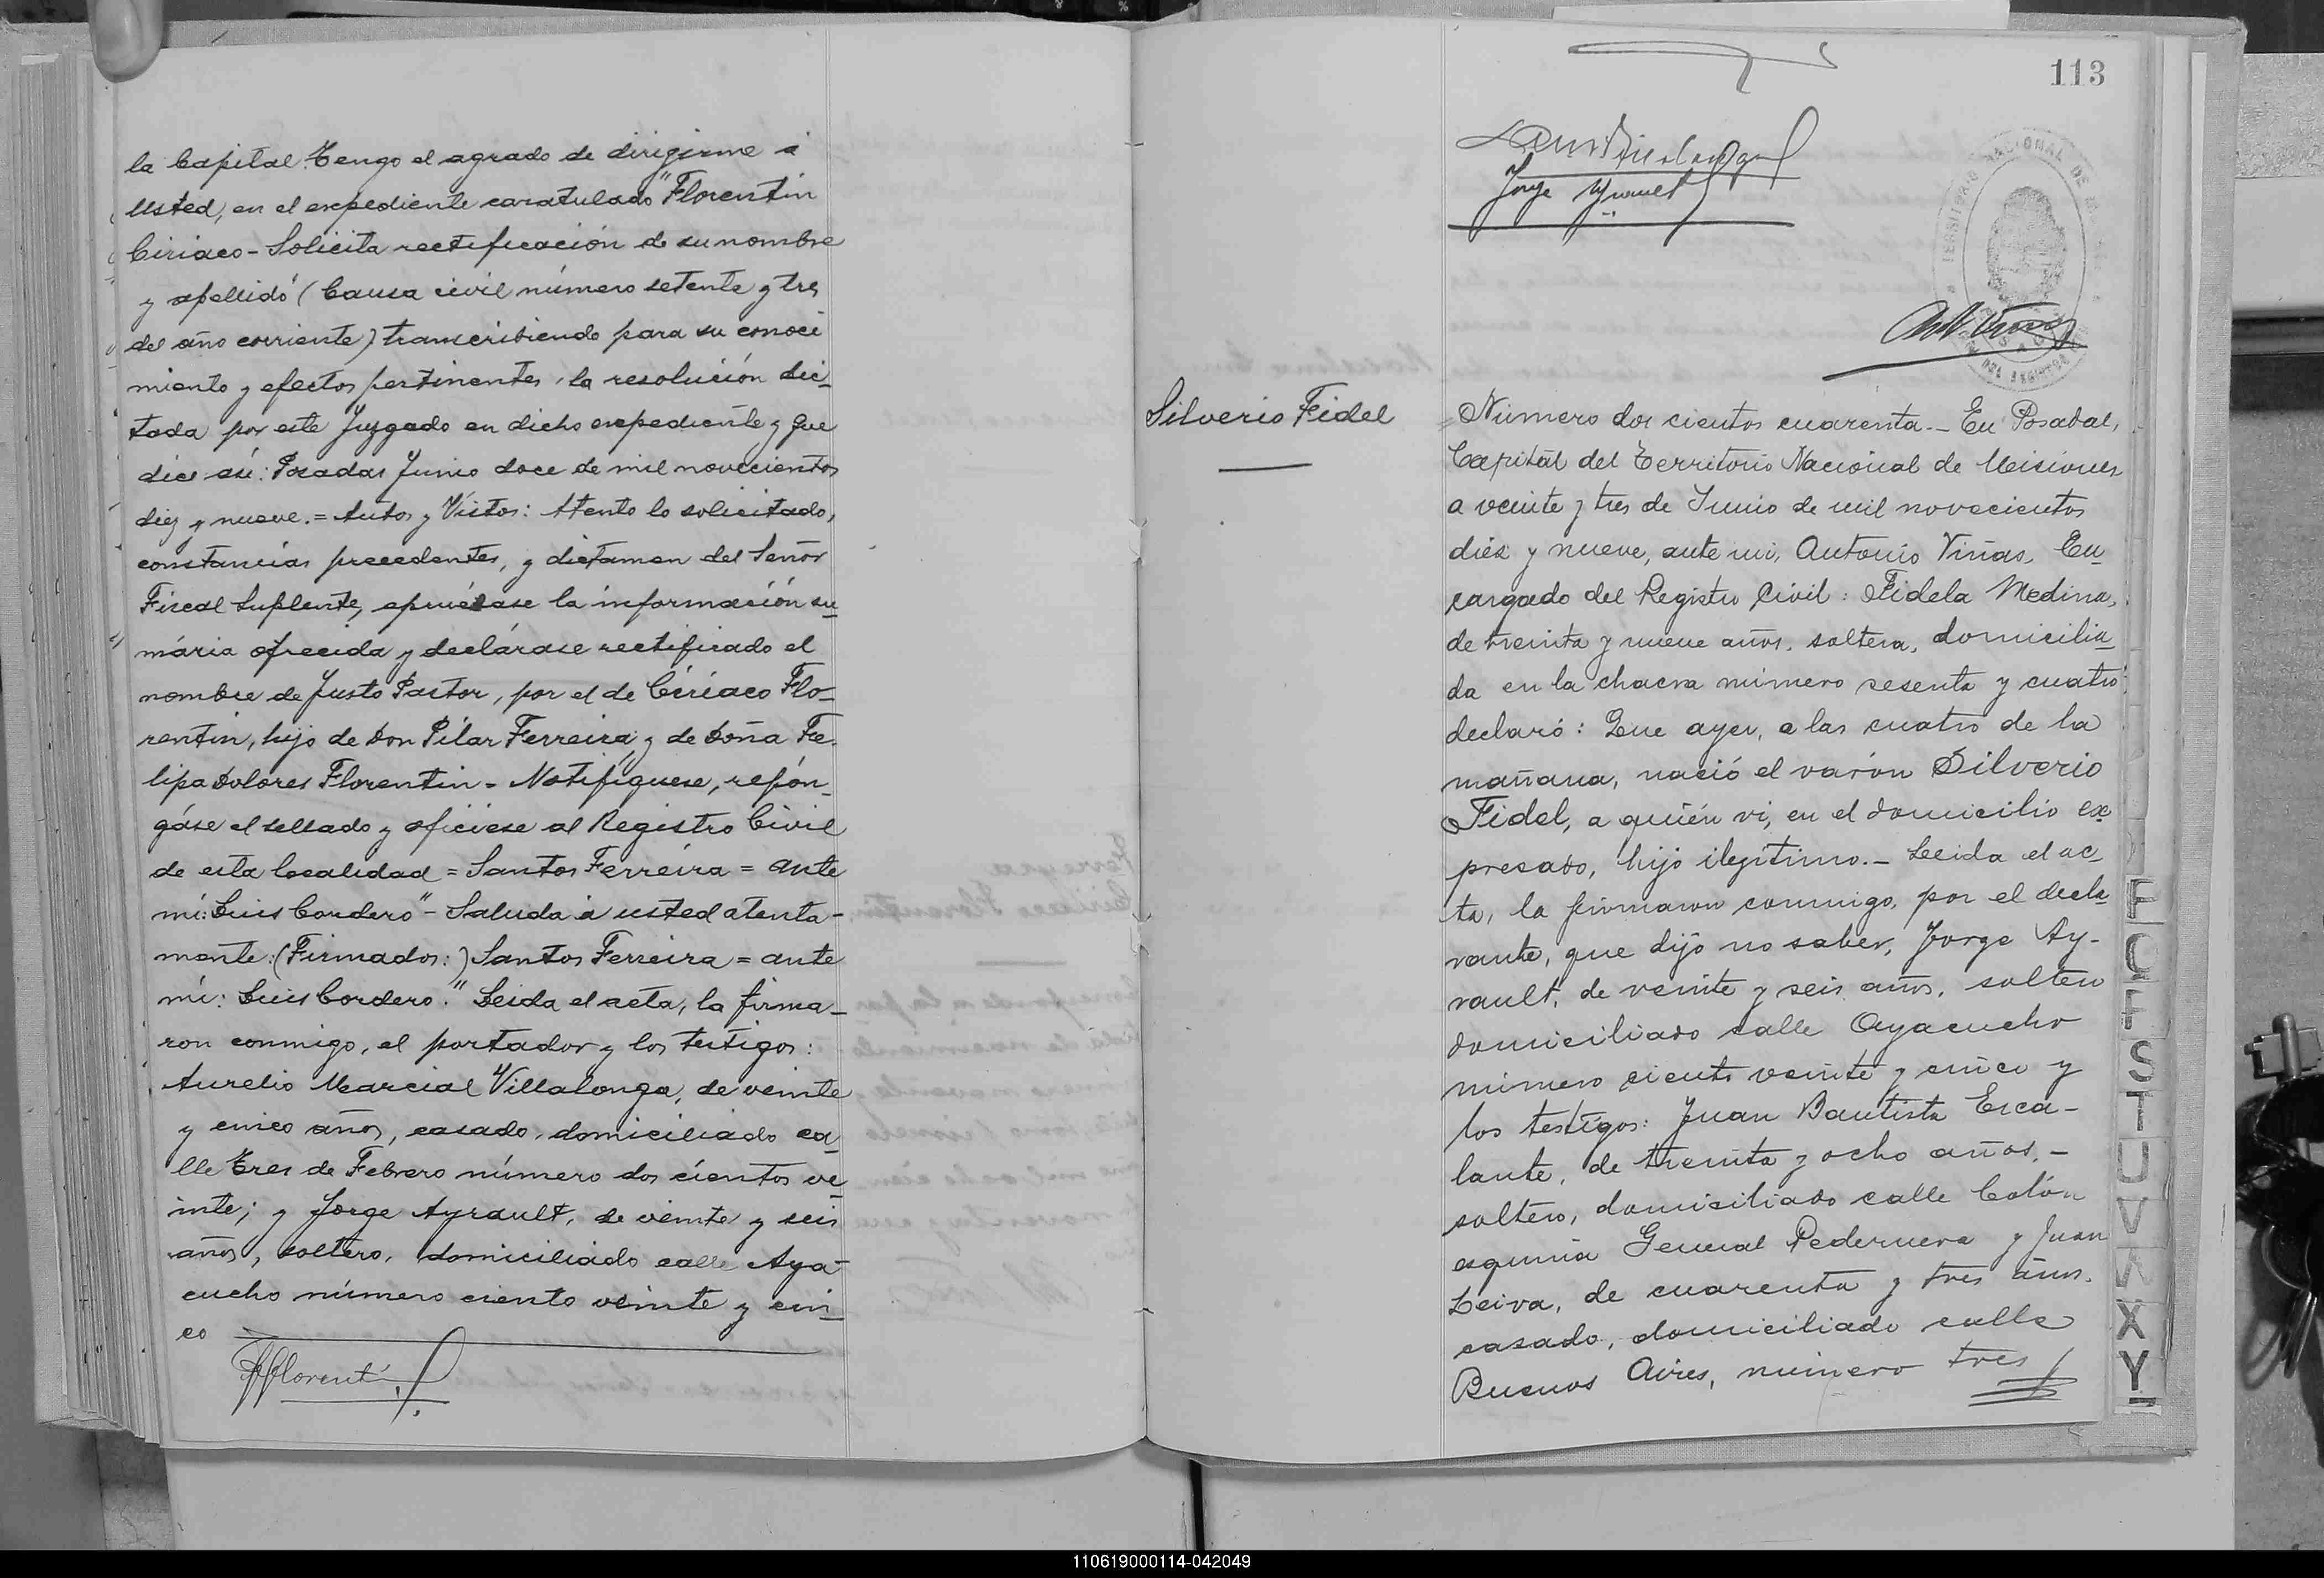 la Capital. Tengo el agrado de dirigirme á
Usted, en el expediente caratulado "Florentin
Ciriaco - Solicita rectificación de su nombre
y apellido" (Causa civil número setenta y tres
del año corriente) transcribiendo para su conoci
miento y efectos pertinentes, la resolución dic_
tada por este Juzgado en dicho expediente y que
dice así: Posadas Junio doce de mil novecientos
diez y nueve. = Autos y Vistos: Atento lo solicitado,
constancias precedentes, y dictamen del Señor
Fiscal Suplente, apruébase la información su_
mária ofrecida y declárase rectificado el
nombre de Justo Pastor, por el de Ciríaco Flo_
rentin, hijo de Don Pilar Ferreira y de Doña Fe_
lipa Dolores Florentin - Notifíquese, repón_
gáse el sellado y ofíciese al Registro Civil
de esta localidad = Santos Ferreira = ante
mí: Luis Cordero" - Saluda á usted atenta-
mente: (Firmados:) Santos Ferreira = ante
mí: Luis Cordero." Leida el acta, la firma_
ron conmigo, el portador y los testigos:
Aurelio Marcial Villalonga, de veinte
y cinco años, casado, domiciliado ca_
lle Tres de Febrero número dos cientos ve_
inte; y Jorge Ayrault, de veinte y seis
años, soltero, domiciliado calle Aya-
cucho número ciento veinte y cin_
co
Florentín
113
Jorge Ayrault
TERRITORIO NACIONAL DE
DEL REGISTRO
Silverio Fidel
Número dos cientos cuarenta.- En Posadas,
Capital del Territorio Nacional de Misiones
a veinte y tres de Junio de mil novecientos
diez y nueve, ante mi, Antonio Viñas, En_
cargado del Registro Civil: Fidela Medina,
de treinta y nueve años, soltera, domicilia_
da en la chacra número sesenta y cuatro
declaró: Que ayer, a las cuatro de la
mañana, nació el varón Silverio
Fidel, a quién vi, en el domicilio ex_
presado, hijo ilegítimo.- Leida el ac_
ta, la firmaron conmigo, por el decla_
rante, que dijo no saber, Jorge Ay-
rault, de veinte y seis años, soltero
domiciliado calle Ayacucho
número ciento veinte y cinco y
los testigos: Juan Bautista Esca-
lante, de treinta y ocho años, -
soltero, domiciliado calle Colón
esquina General Pedernera y Juan
Leiva, de cuarenta y tres años,
casado, domiciliado calle
Buenos Aires, número tres
S
T
U
V
X
Y
110619000114-042049